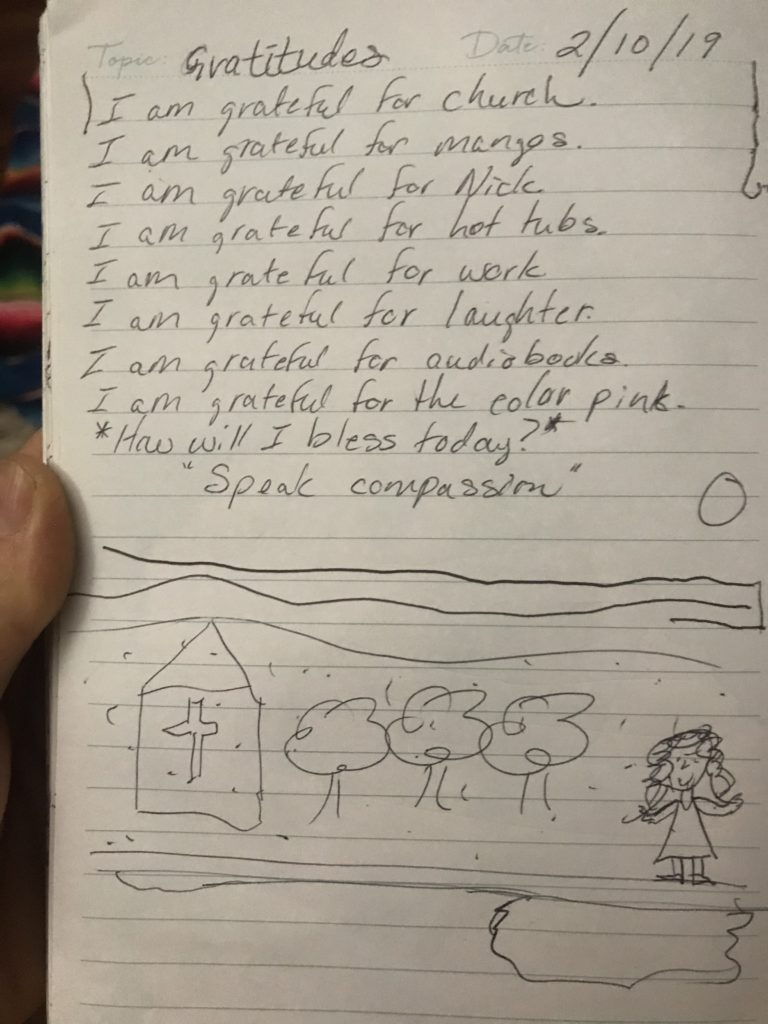 Topic: Gratitudes Date: 2/10/19
I am grateful for church.
I am grateful for mangos.
I am grateful for Nick.
I am grateful for hot tubs.
I am grateful for work
I am grateful for laughter.
I am grateful for audiobooks.
I am grateful for the color pink.
*How will I bless today?*
"Speak compassion"